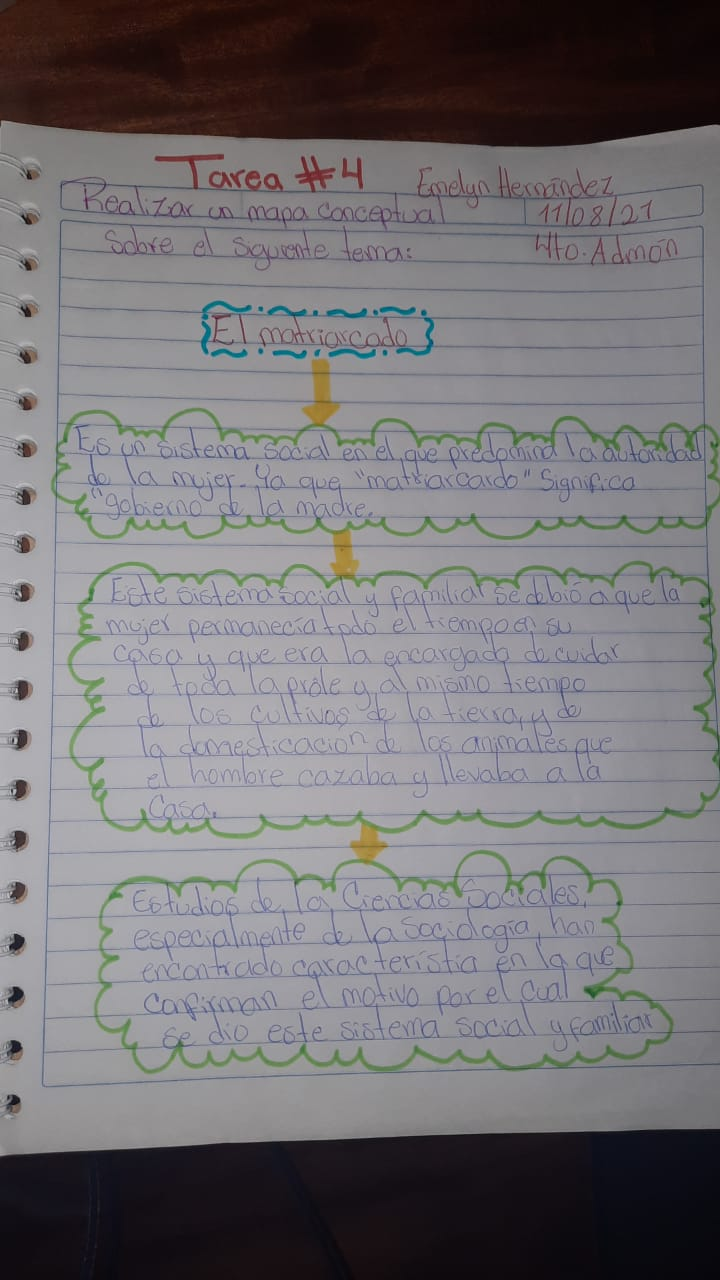 Tarea #4
Emelyn Hernández
Realizar un mapa conceptual
11/08/21
Sobre el siguiente tema:
4to. Admón
El matriarcado
Es un sistema social en el que predomina la autoridad
de la mujer. Ya que "matriarcardo" Significa
"gobierno de la madre.
Este sistema social y familial se debió a que la
mujer permanecía todo el tiempo en su
casa y que era la encargada de cuidar
de toda la prole y al mismo tiempo
de los cultivos de la tierra, y de
la domesticación de los animales que
el hombre cazaba y llevaba a la
Casa.
Estudios de la Ciencias Sociales,
especialmente de la Sociología, han
encontrado caracteristia en la que
Confirman el motivo por el cual
se dio este sistema social y familiar